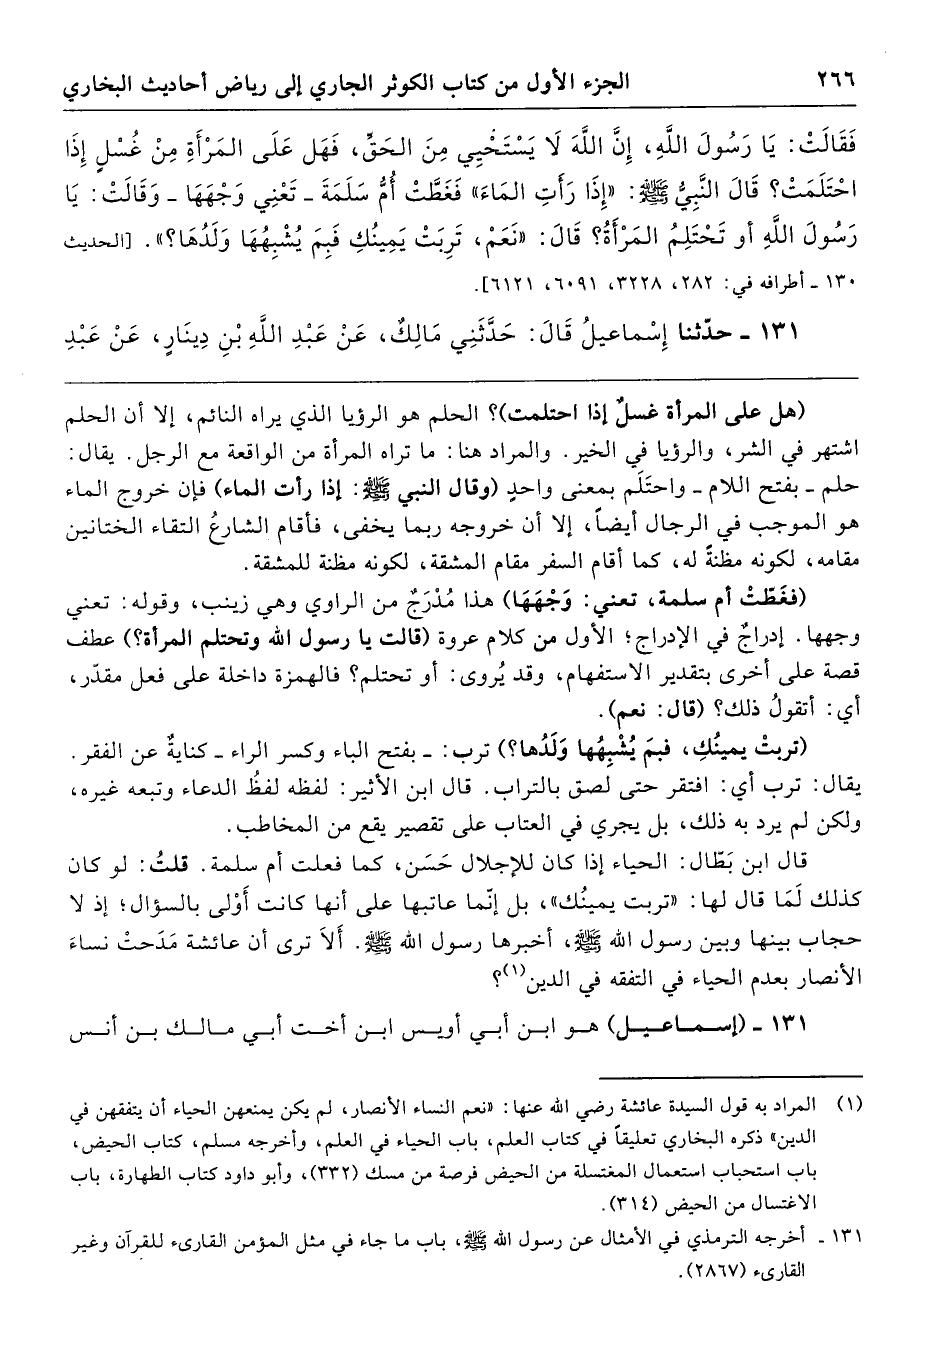 ٢٦٦ الجزء الأول من كتاب الكوثر الجاري إلى رياض أحاديث البخاري
فَقَالَتْ: يَا رَسُولَ اللَّهِ، إِنَّ اللَّهَ لَا يَسْتَحْيِي مِنَ الحَقِّ، فَهَل عَلَى المَرْأَةِ مِنْ غُسْلٍ إِذَا
احْتَلَمَتْ؟ قَالَ النَّبِيُّ ﷺ: «إِذَا رَأَتِ المَاءَ» فَغَطَّتْ أُمُّ سَلَمَةَ ـ تَعْنِي وَجْهَهَا ـ وَقَالَتْ: يَا
رَسُولَ اللَّهِ أو تَحْتَلِمُ المَرْأَةُ؟ قَالَ: «نَعَمْ، تَرِبَتْ يَمِينُكِ فَبِمَ يُشْبِهُهَا وَلَدُهَا؟». [الحديث
١٣٠ ـ أطرافه في: ٢٨٢، ٣٢٢٨، ٦٠٩١، ٦١٢١].
١٣١ ـ حدّثنا إِسْماعيلُ قَالَ: حَدَّثَنِي مَالِكٌ، عَنْ عَبْدِ اللَّهِ بْنِ دِينَارٍ، عَنْ عَبْدِ
(هل على المرأة غسلٌ إذا احتلمت)؟ الحلم هو الرؤيا الذي يراه النائم، إلا أن الحلم
اشتهر في الشر، والرؤيا في الخير. والمراد هنا: ما تراه المرأة من الواقعة مع الرجل. يقال:
حلم ـ بفتح اللام ـ واحتَلَم بمعنى واحدٍ (وقال النبي ﷺ: إذا رأت الماء) فإن خروج الماء
هو الموجب في الرجال أيضاً، إلا أن خروجه ربما يخفى، فأقام الشارعُ التقاء الختانين
مقامه، لكونه مظنةً له، كما أقام السفر مقام المشقة، لكونه مظنة للمشقة.
(فغَطّتْ أم سلمة، تعني: وَجْهَهَا) هذا مُدْرَجٌ من الراوي وهي زينب، وقوله: تعني
وجهها. إدراجٌ في الإدراج؛ الأول من كلام عروة (قالت يا رسول الله وتحتلم المرأة؟) عطف
قصة على أخرى بتقدير الاستفهام، وقد يُروى: أو تحتلم؟ فالهمزة داخلة على فعل مقدّر،
أي: أتقولُ ذلك؟ (قال: نعم).
(تربتْ يمينُكِ، فبمَ يُشْبِهُها وَلَدُها؟) ترب: ـ بفتح الباء وكسر الراء ـ كنايةٌ عن الفقر.
يقال: ترب أي: افتقر حتى لصق بالتراب. قال ابن الأثير: لفظه لفظُ الدعاء وتبعه غيره،
ولكن لم يرد به ذلك، بل يجري في العتاب على تقصير يقع من المخاطب.
قال ابن بَطّال: الحياء إذا كان للإجلال حَسَن، كما فعلت أم سلمة. قلتُ: لو كان
كذلك لَمَا قال لها: «تربت يمينُك»، بل إنّما عاتبها على أنها كانت أَوْلى بالسؤال؛ إذ لا
حجاب بينها وبين رسول الله ﷺ، أخبرها رسول الله ﷺ. أَلاَ ترى أن عائشة مَدَحتْ نساءَ
الأنصار بعدم الحياء في التفقه في الدين(١)؟
١٣١ ـ (إسماعيل) هو ابن أبي أويس ابن أخت أبي مالك بن أنس
(١) المراد به قول السيدة عائشة رضي الله عنها: «نعم النساء الأنصار، لم يكن يمنعهن الحياء أن يتفقهن في
الدين» ذكره البخاري تعليقاً في كتاب العلم، باب الحياء في العلم، وأخرجه مسلم، كتاب الحيض،
باب استحباب استعمال المغتسلة من الحيض فرصة من مسك (٣٣٢)، وأبو داود كتاب الطهارة، باب
الاغتسال من الحيض (٣١٤).
١٣١ ـ أخرجه الترمذي في الأمثال عن رسول الله ﷺ، باب ما جاء في مثل المؤمن القارىء للقرآن وغير
القارىء (٢٨٦٧).